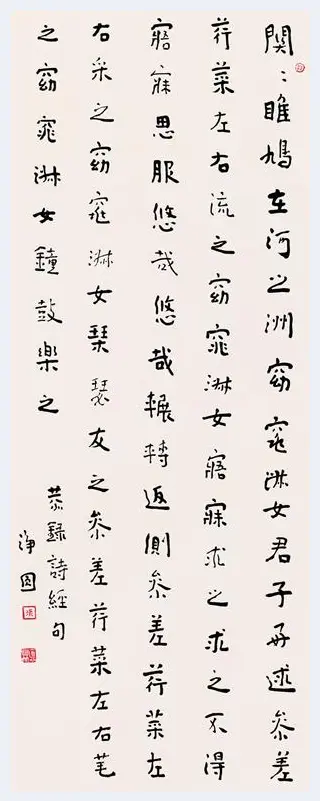 關〻雎鳩在河之洲窈窕淑女君子好逑叅差
荇菜左右流之窈窕淑女寤寐求之求之不得
寤寐思服悠哉悠哉輾轉返側叅差荇菜左
右采之窈窕淑女琴瑟友之叅差荇菜左右芼
之窈窕淑女鐘鼓樂之
恭錄詩經句